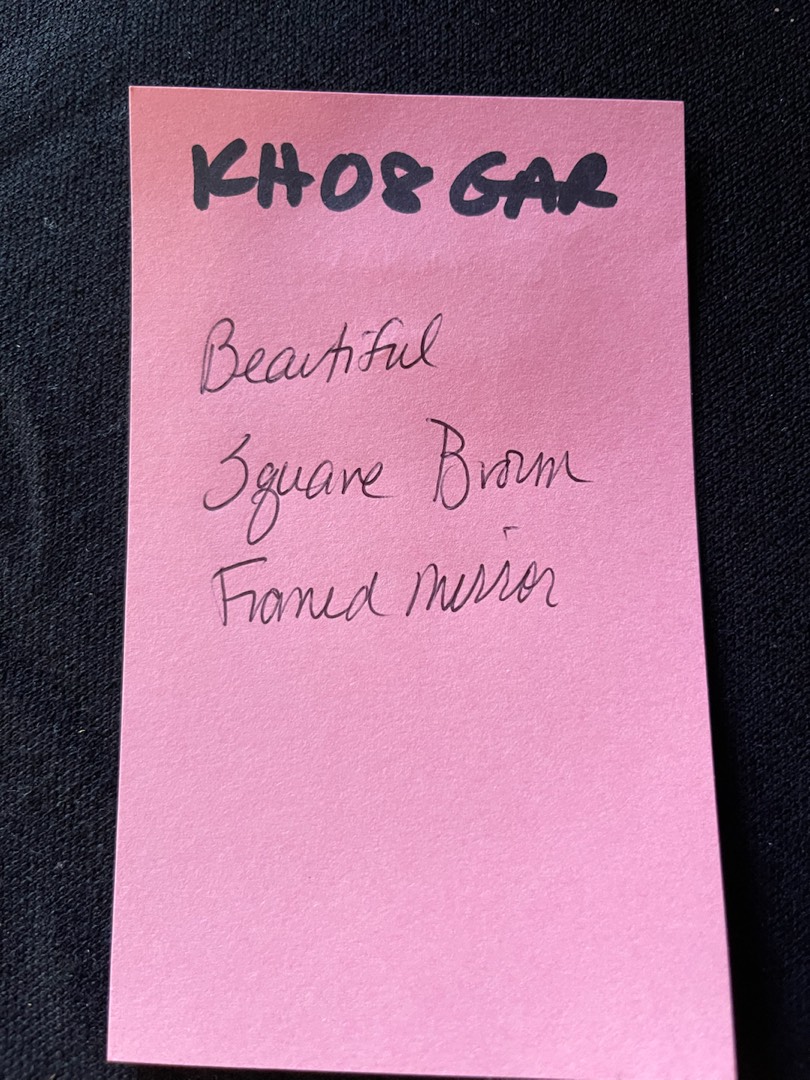 KH08 GAR
Beautiful
Square Brown
Framed mirror